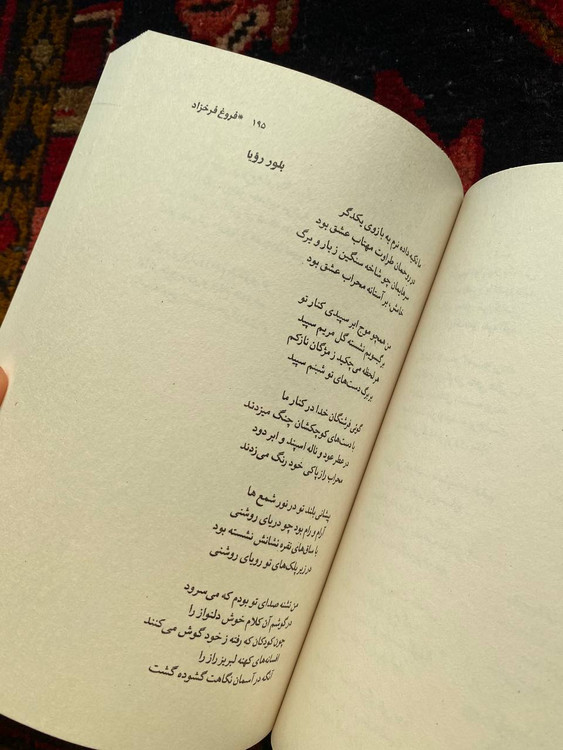 ۱۹۵ * فروغ فرخزاد
بلور رؤیا
ما تکیه داده نرم به بازوی یکدگر
در روحمان طراوت مهتاب عشق بود
سرهایمان چو شاخه سنگین ز بار و برگ
خامش، بر آستانه محراب عشق بود
من همچو موج ابر سپیدی کنار تو
بر گیسویم نشسته گل مریم سپید
هر لحظه می‌چکید ز مژگان نازکم
بر برگ دست‌های تو شبنم سپید
گویی فرشتگان خدا در کنار ما
با دست‌های کوچکشان چنگ میزدند
در عطر عود و ناله اسپند و ابر دود
محراب را ز پاکی خود رنگ می‌زدند
پیشانی بلند تو در نور شمع ها
آرام و رام بود چو دریای روشنی
با ساق‌های نقره نشانش نشسته بود
در زیر پلک‌های تو رویای روشنی
من تشنه صدای تو بودم که می‌سرود
در گوشم آن کلام خوش دلنواز را
چون کودکان که رفته ز خود گوش می‌کنند
افسانه‌های کهنه لبریز راز را
آنگه در آسمان نگاهت گشوده گشت